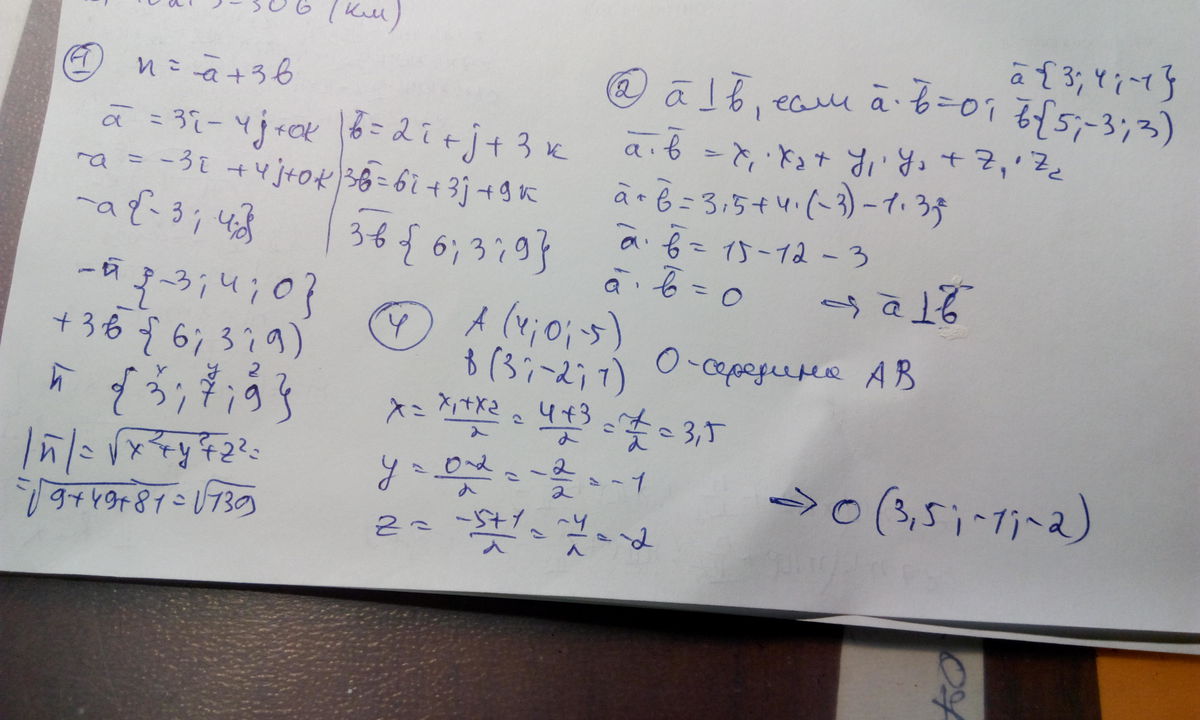 30б (км)
① n = -a̅ + 3b
a̅ = 3i - 4j + 0k
-a = -3i + 4j + 0k
-a {-3; 4; 0}
b̅ = 2i + j + 3k
3b̅ = 6i + 3j + 9k
3b̅ {6; 3; 9}
-a̅ {-3; 4; 0}
+ 3b̅ {6; 3; 9)
x y z
n̅ {3; 7; 9}
|n̅| = √x²+y²+z² =
= √9+49+81 = √139
② a̅ ⊥ b̅, если a̅ · b̅ = 0; a̅ {3; 4; -1}
b̅ {5; -3; 3)
a̅ · b̅ = x₁ · x₂ + y₁ · y₂ + z₁ · z₂
a̅ · b̅ = 3·5 + 4·(-3) - 1·3;
a̅ · b̅ = 15 - 12 - 3
a̅ · b̅ = 0 ⇒ a̅ ⊥ b̅
④ A (4; 0; -5)
B (3; -2; 1) O - середина AB
x = x₁+x₂/2 = 4+3/2 = 7/2 = 3,5
y = 0-2/2 = -2/2 = -1
z = -5+1/2 = -4/2 = -2
⇒ O (3,5; -1; -2)